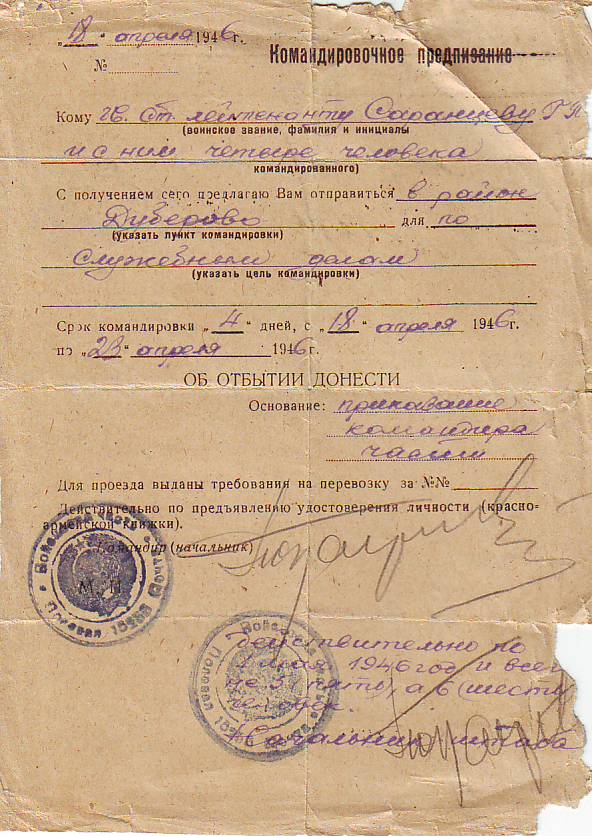 „18" апреля 1946 г.
Командировочное предписание
№
Кому гв. ст. лейтенанту Саранцеву Г П
(воинское звание, фамилия и инициалы
и с ним четыре человека
командированного)
С получением сего предлагаю Вам отправиться в район
Дуберово для по
(указать пункт командировки)
служебным делам
(указать цель командировки)
Срок командировки „4" дней, с „18" апреля 1946г.
по „23" апреля 1946г.
ОБ ОТБЫТИИ ДОНЕСТИ
Основание: приказание
командира
части
Для проезда выданы требования на перевозку за №№
Действительно по предъявлению удостоверения личности (красно-
армейской книжки).
Командир (начальник)
М. П
Полевая
действительно по
мая 1946 год и всего
не 5 (пять), а 6 (шесть
человек.
Начальник штаба